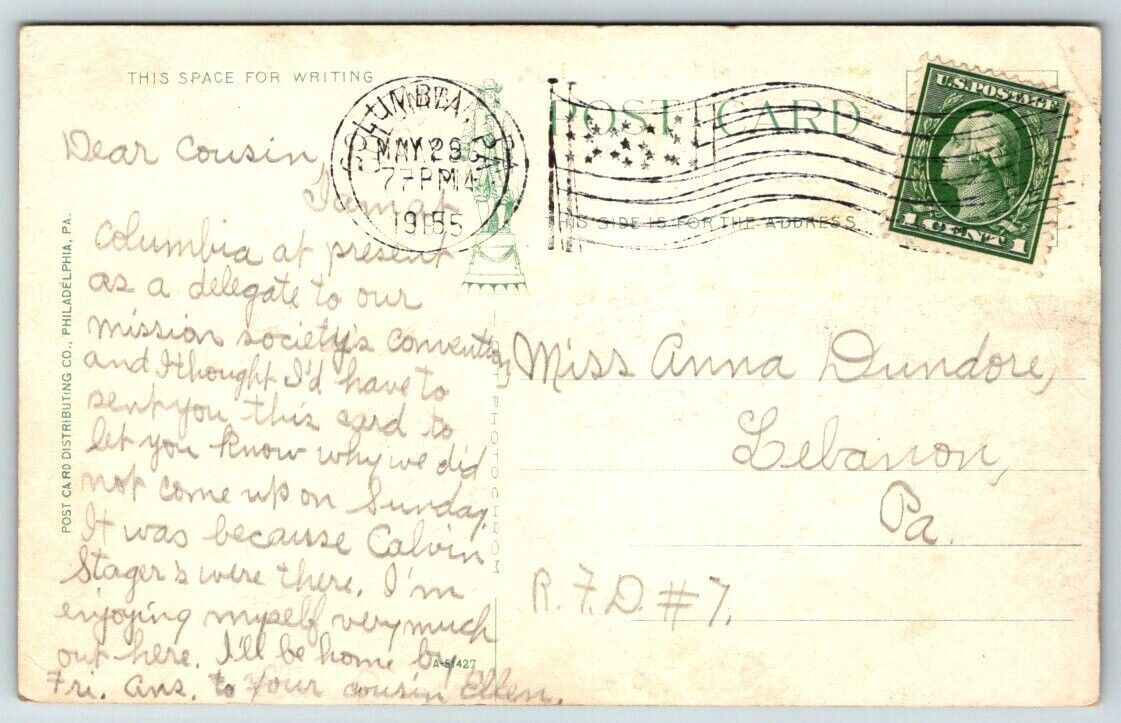 THIS SPACE FOR WRITING
POST CARD
THIS SIDE IS FOR THE ADDRESS
U.S. POSTAGE
1 CENT 1
COLUMBIA, PA.
MAY 28
7 PM
1915
Dear Cousin,
I'm at
Columbia at present
as a delegate to our
mission society's convention
and I thought I'd have to
sent you this card to
let you know why we did
not come up on Sunday.
It was because Calvin
Stager's were there. I'm
enjoying myself very much
out here. I'll be home by
Fri. Ans. to Your cousin Ellen.
Miss Anna Dundore,
Lebanon,
Pa.
R.F.D. #7.
POST CARD DISTRIBUTING CO., PHILADELPHIA, PA.
PHOTOCHROM
A-51427